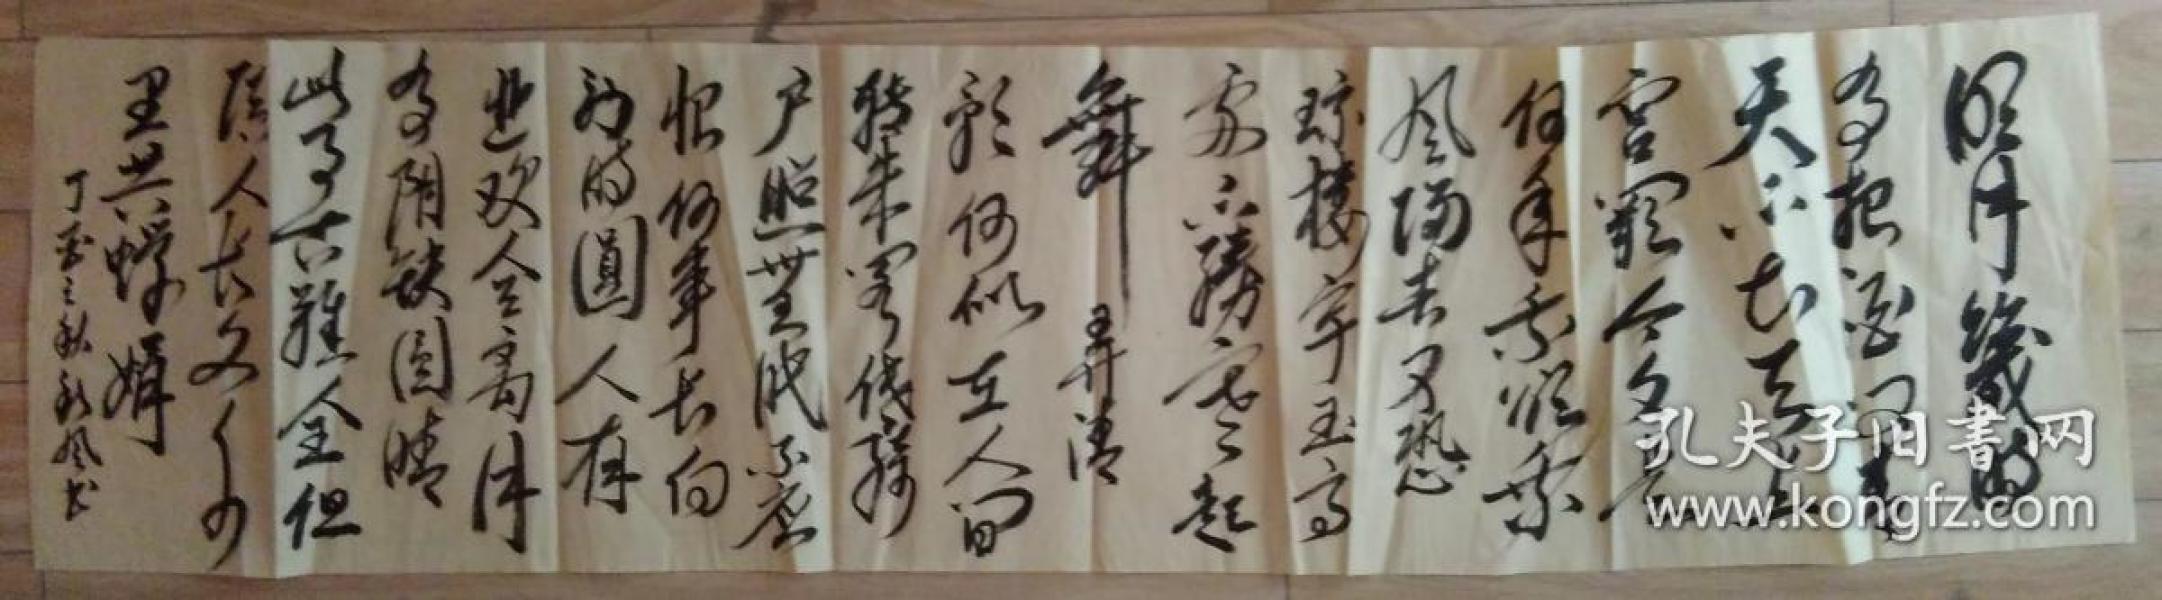 明月幾時
有把酒問青
天不知天上
宫闕今夕是
何年我欲乘
风歸去又恐
琼樓宇玉高
處不勝寒起
舞弄清
影何似在人间
转朱阁低綺
户照無眠不應
恨何事长向
别時圓人有
悲欢合离月
有陰缺圆晴
此事古難全但
愿人长久千
里共嬋娟
丁酉之秋 风书
孔夫子旧書网
www.kongfz.com